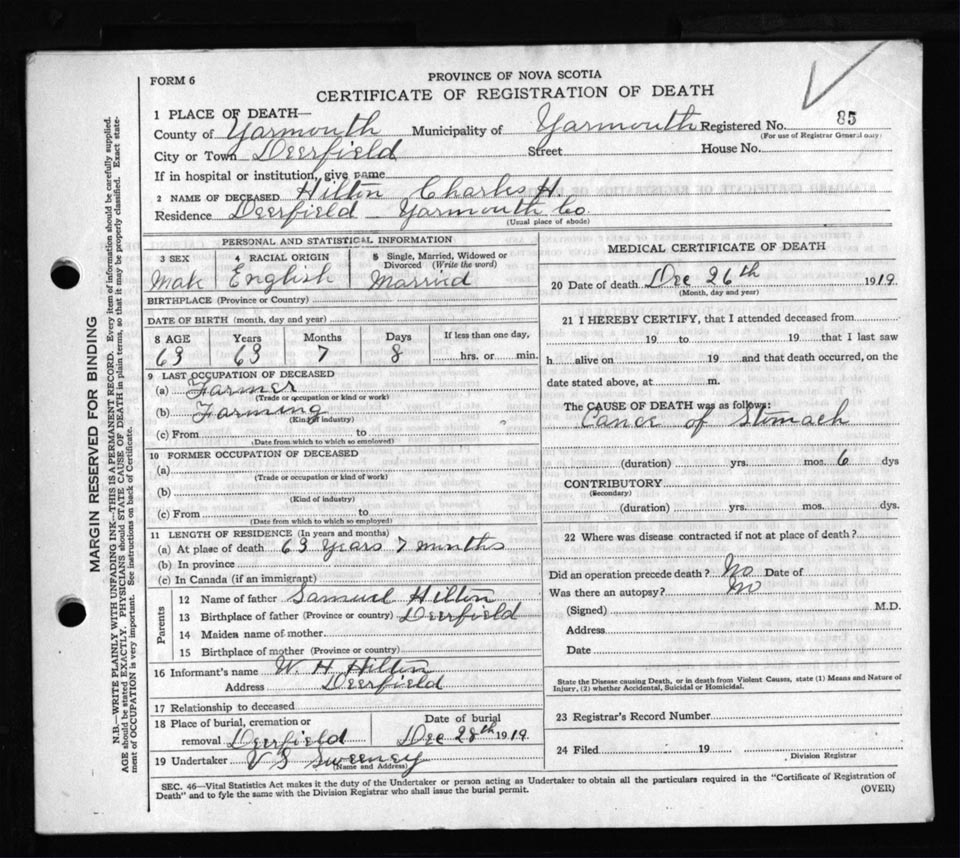 FORM 6
PROVINCE OF NOVA SCOTIA
CERTIFICATE OF REGISTRATION OF DEATH
1 PLACE OF DEATH—
County of Yarmouth Municipality of Yarmouth Registered No. 85
(For use of Registrar General only)
City or Town Deerfield Street House No.
If in hospital or institution, give name
2 NAME OF DECEASED Hilton Charles H.
Residence Deerfield Yarmouth Co.
(Usual place of abode)
PERSONAL AND STATISTICAL INFORMATION
3 SEX 4 RACIAL ORIGIN 5 Single, Married, Widowed or Divorced (Write the word)
Male English Married
BIRTHPLACE (Province or Country)
DATE OF BIRTH (month, day and year)
8 AGE Years Months Days If less than one day,
63 63 7 8 hrs. or min.
9 LAST OCCUPATION OF DECEASED
(a) Farmer
(Trade or occupation or kind or work)
(b) Farming
(Kind of industry)
(c) From to
(Date from which to which so employed)
10 FORMER OCCUPATION OF DECEASED
(a)
(Trade or occupation or kind of work)
(b)
(Kind of industry)
(c) From to
(Date from which to which so employed)
11 LENGTH OF RESIDENCE (In years and months)
(a) At place of death 63 Years 7 months
(b) In province
(c) In Canada (if an immigrant)
Parents
12 Name of father Samuel Hilton
13 Birthplace of father (Province or country) Deerfield
14 Maiden name of mother
15 Birthplace of mother (Province or country)
16 Informant's name W. H. Hilton
Address Deerfield
17 Relationship to deceased
18 Place of burial, cremation or removal Deerfield
Date of burial
Dec 28th 1919.
19 Undertaker V S Sweeney
(Name and Address)
MEDICAL CERTIFICATE OF DEATH
20 Date of death Dec 26th 1919.
(Month, day and year)
21 I HEREBY CERTIFY, that I attended deceased from
19 to 19 that I last saw
h alive on 19 and that death occurred, on the
date stated above, at m.
The CAUSE OF DEATH was as follows:
Cancr of Stomach
(duration) yrs. mos. 6 dys
CONTRIBUTORY
(Secondary)
(duration) yrs. mos. dys.
22 Where was disease contracted if not at place of death?
Did an operation precede death? No Date of
Was there an autopsy? no
(Signed) M.D.
Address
Date
State the Disease causing Death, or in death from Violent Causes, state (1) Means and Nature of
Injury, (2) whether Accidental, Suicidal or Homicidal.
23 Registrar's Record Number
24 Filed 19
Division Registrar
SEC. 46—Vital Statistics Act makes it the duty of the Undertaker or person acting as Undertaker to obtain all the particulars required in the "Certificate of Registration of
Death" and to fyle the same with the Division Registrar who shall issue the burial permit.
(OVER)
MARGIN RESERVED FOR BINDING
N.B.—WRITE PLAINLY WITH UNFADING INK—THIS IS A PERMANENT RECORD. Every item of information should be carefully supplied.
AGE should be stated EXACTLY. PHYSICIANS should STATE CAUSE OF DEATH in plain terms, so that it may be properly classified. Exact state-
ment of OCCUPATION is very important. See instructions on back of Certificate.